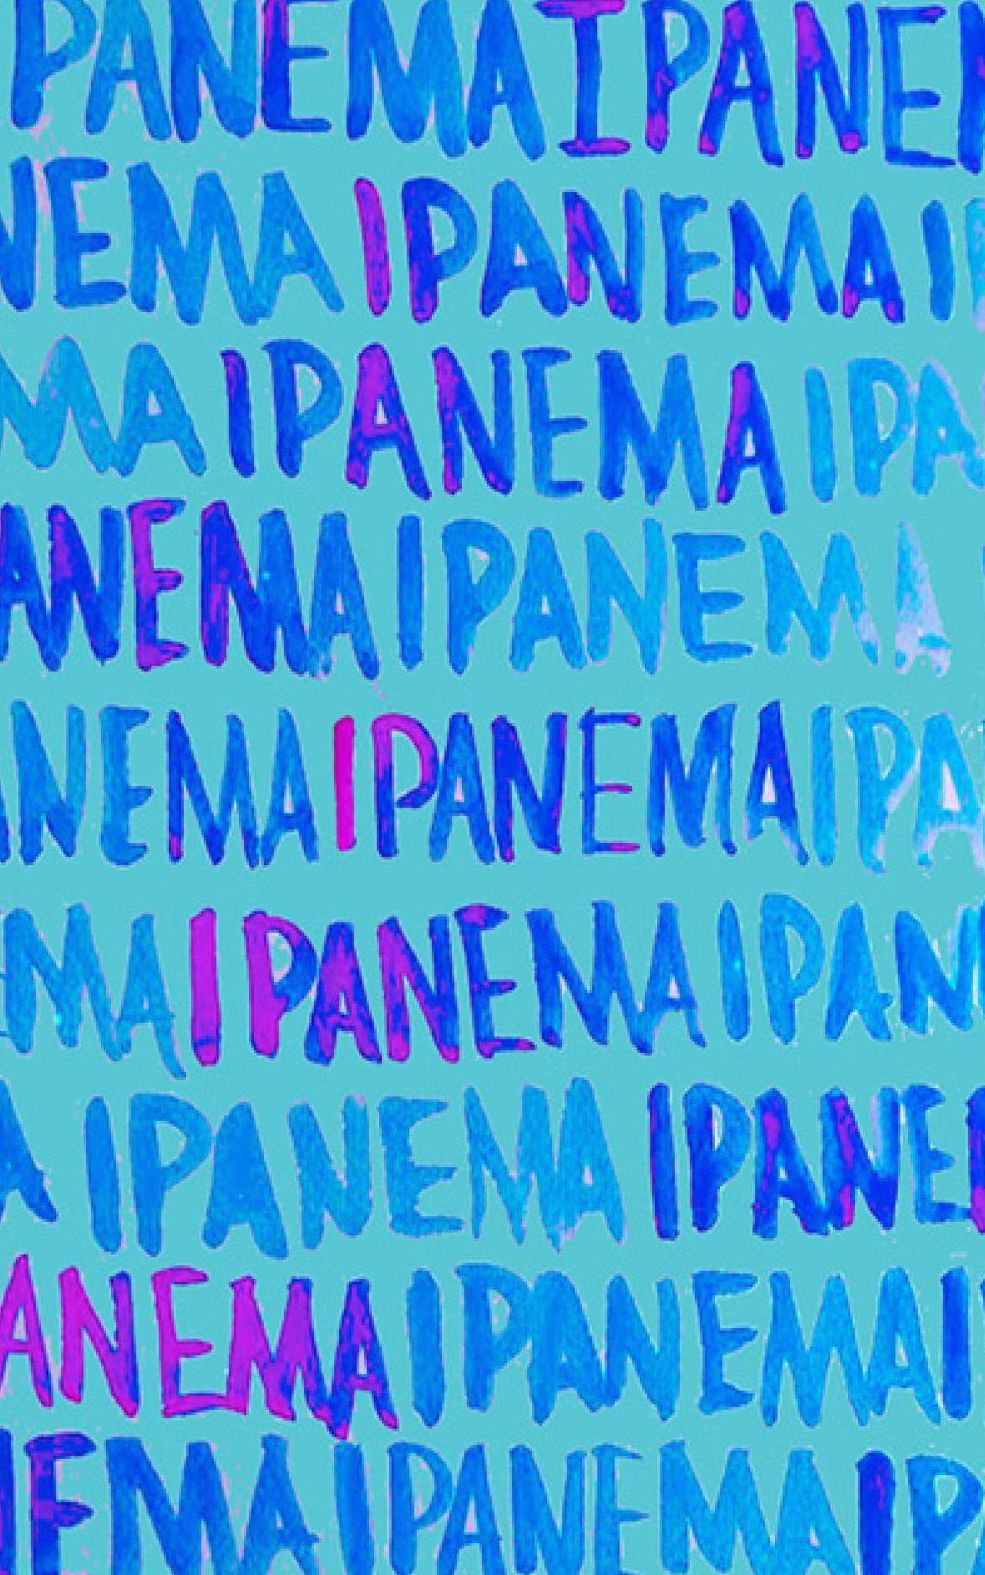 PANEMA IPANEM
NEMA IPANEMA IP
MA IPANEMA IPA
ANEMA IPANEMA
ANEMA IPANEMA IPA
EMA IPANEMA IPAN
A IPANEMA IPANEM
ANEMA IPANEMA I
NEMA IPANEMA IP